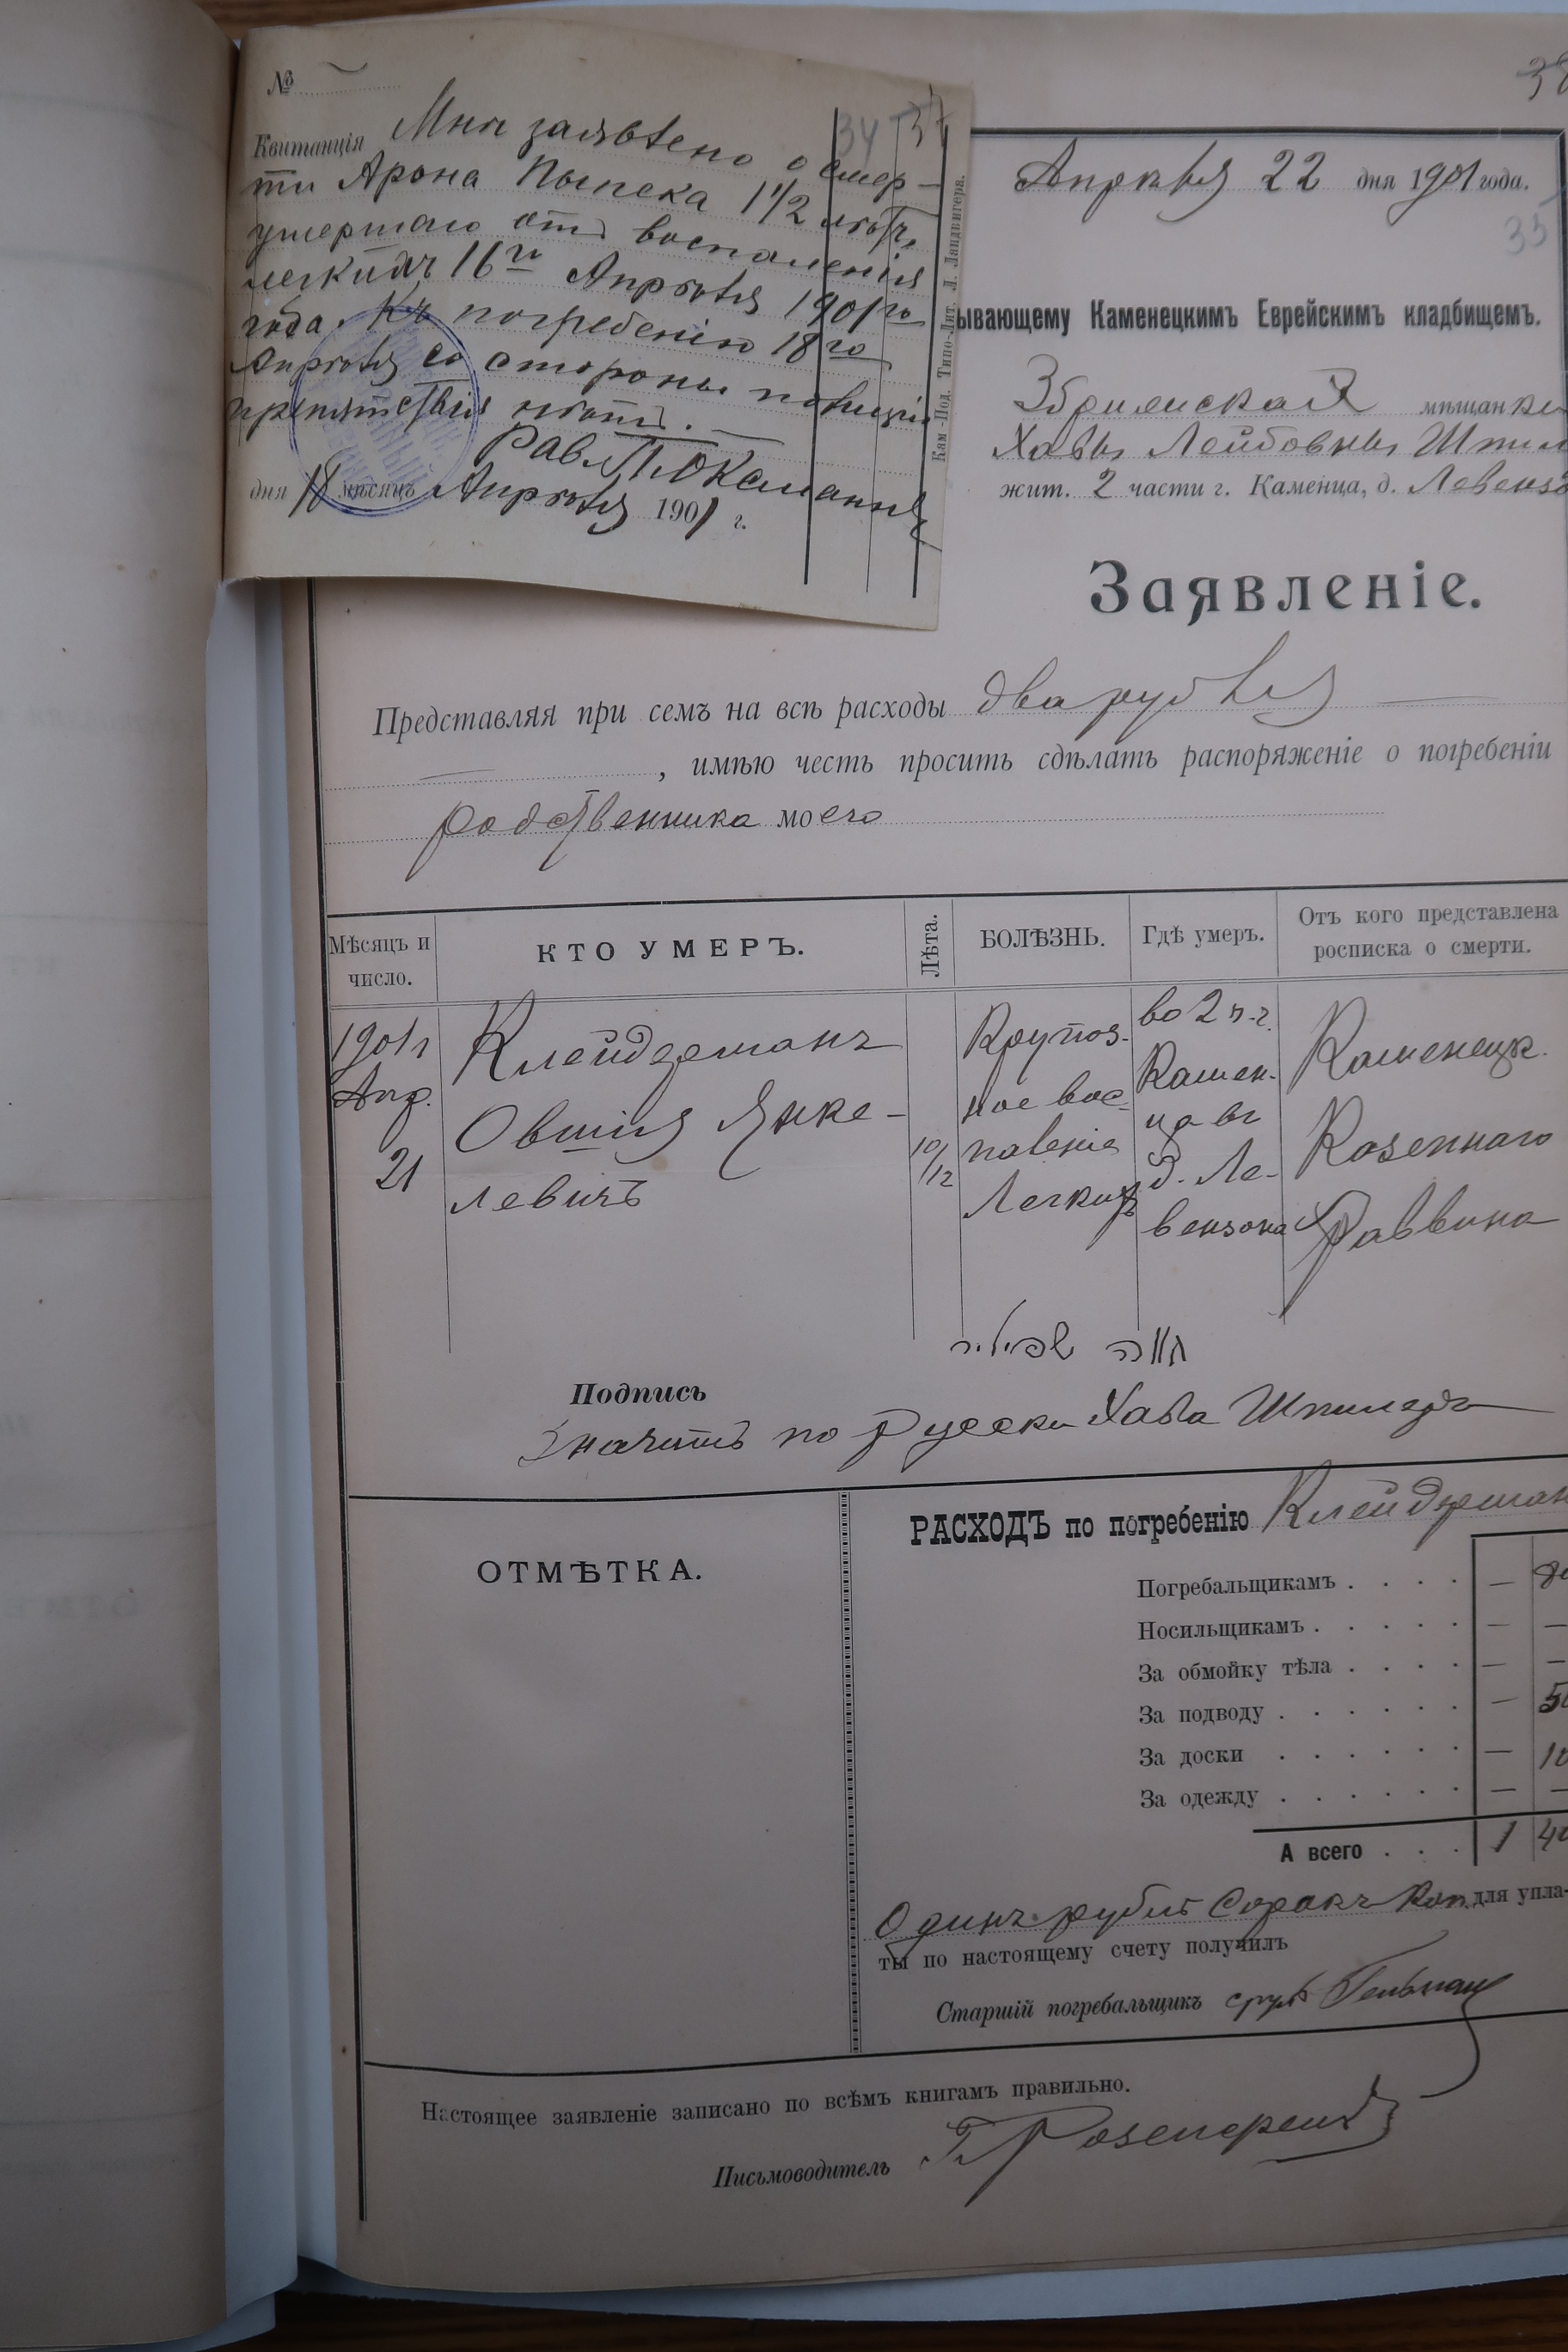 №
34 37
Квитанція Мнѣ заявлено о смер-
ти Арона Пыпека 1 1/2 лѣтъ,
умершаго отъ воспаленія
легкихъ 16го Апрѣля 1901 го
года. Къ погребенію 18 го
Апрѣля со стороны полиціи
препятствія нѣтъ.
Рав.
дня 18 мѣсяцъ Апрѣля 1901 г.
Кам.-Под. Типо-Лит. Л. Ландвигера.
38
Апрѣля 22 дня 1901 года.
35
ывающему Каменецкимъ Еврейскимъ кладбищемъ.
мѣщанки
Хавы Лейбовны Шпил
жит. 2 части г. Каменца, д. Левензо
Заявленіе.
Представляя при семъ на всѣ расходы два рубля
, имѣю честь просить сдѣлать распоряженіе о погребеніи
родственника моего
Мѣсяцъ и число.
КТО УМЕРЪ.
Лѣта.
БОЛѢЗНЬ.
Гдѣ умеръ.
Отъ кого представлена росписка о смерти.
1901 г
Апр.
21
Клейдерманъ
Овшія Янке-
левичъ
10/12
Крупоз-
ное вос-
паленіе
Легкихъ
во 2 ч. г.
Камен-
ца въ
д. Ле-
вензона
Каменецк.
Казеннаго
Раввина
חוה שפילער
Подпись
Значитъ по Русски Хава Шпилеръ
ОТМѢТКА.
РАСХОДЪ по погребенію Клейдерман
Погребальщикамъ . . . . — 80
Носильщикамъ . . . . . — —
За обмойку тѣла . . . . — —
За подводу . . . . . . — 50
За доски . . . . . . — 10
За одежду . . . . . . — —
А всего . . . 1 40
Одинъ рубль Сорокъ Коп. для упла-
ты по настоящему счету получилъ
Старшій погребальщикъ сруль Гельман
Настоящее заявленіе записано по всѣмъ книгамъ правильно.
Письмоводитель